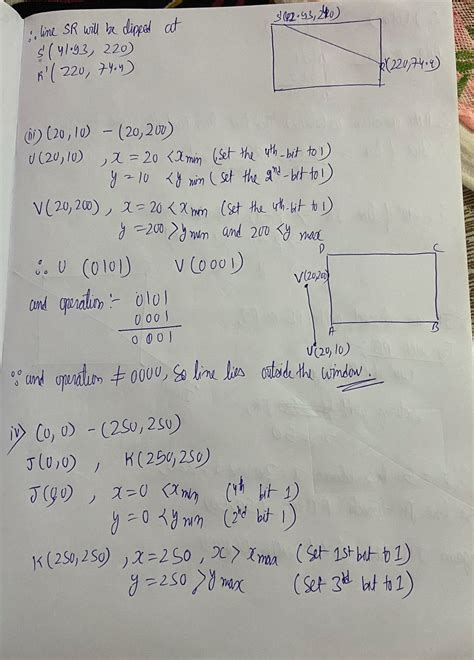 ∴ line SR will be clipped at
S'(41.93, 220)
R'(220, 74.4)
S'(42.93, 220)
R'(220, 74.4)
(iii) (20,10) - (20,200)
U(20,10) , x = 20 < xmin (Set the 4th-bit to 1)
y = 10 < ymin (Set the 2nd-bit to 1)
V(20,200) , x = 20 < xmin (Set the 4th-bit to 1)
y = 200 > ymin and 200 < ymax
∴ U (0101) V(0001)
D C
V(20,200)
and operation :- 0101
0001
0001
A B
U(20,10)
∵ and operation ≠ 0000, So line lies outside the window.
iv) (0,0) - (250,250)
J(0,0) , K(250,250)
J(0,0) , x = 0 < xmin (4th bit 1)
y = 0 < ymin (2nd bit 1)
K(250,250) , x = 250 , x > xmax (Set 1st bit to 1)
y = 250 > ymax (Set 3rd bit to 1)